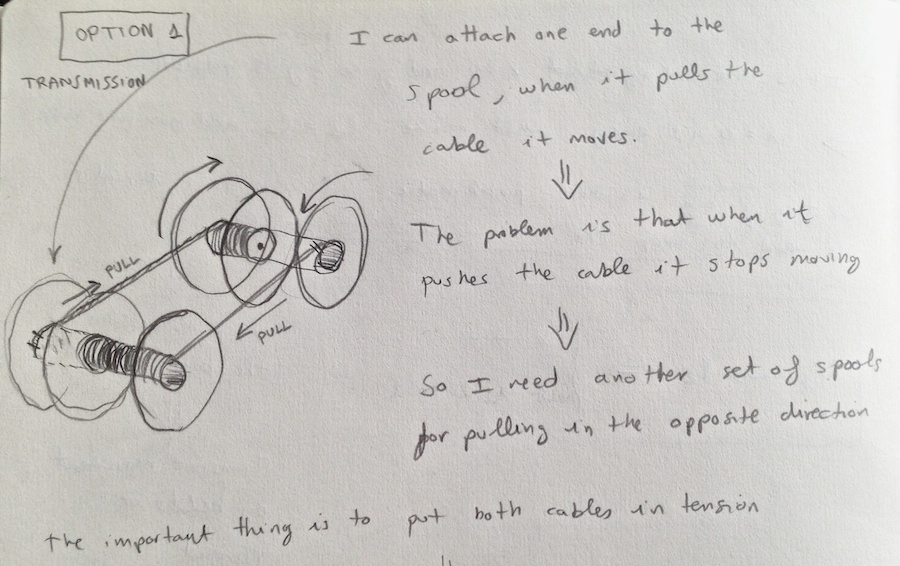 OPTION 1
TRANSMISSION
I can attach one end to the
spool, when it pulls the
cable it moves.
The problem is that when it
pushes the cable it stops moving
So I need another set of spools
for pulling in the opposite direction
PULL
PULL
The important thing is to put both cables in tension